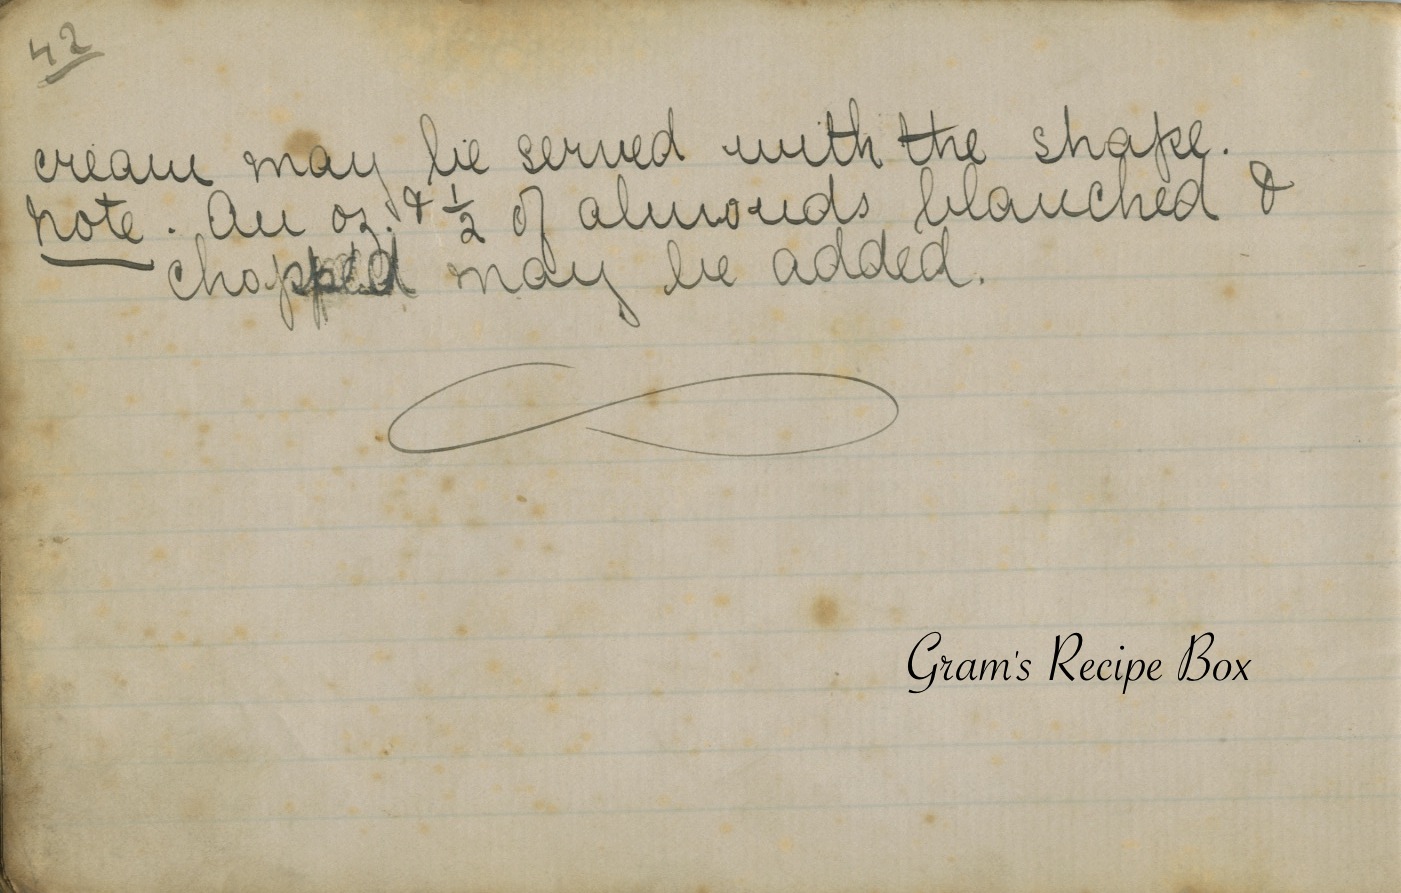 42
cream may be served with the shape.
Note. An oz. & 1/2 of almonds blanched &
chopped may be added.
Gram's Recipe Box